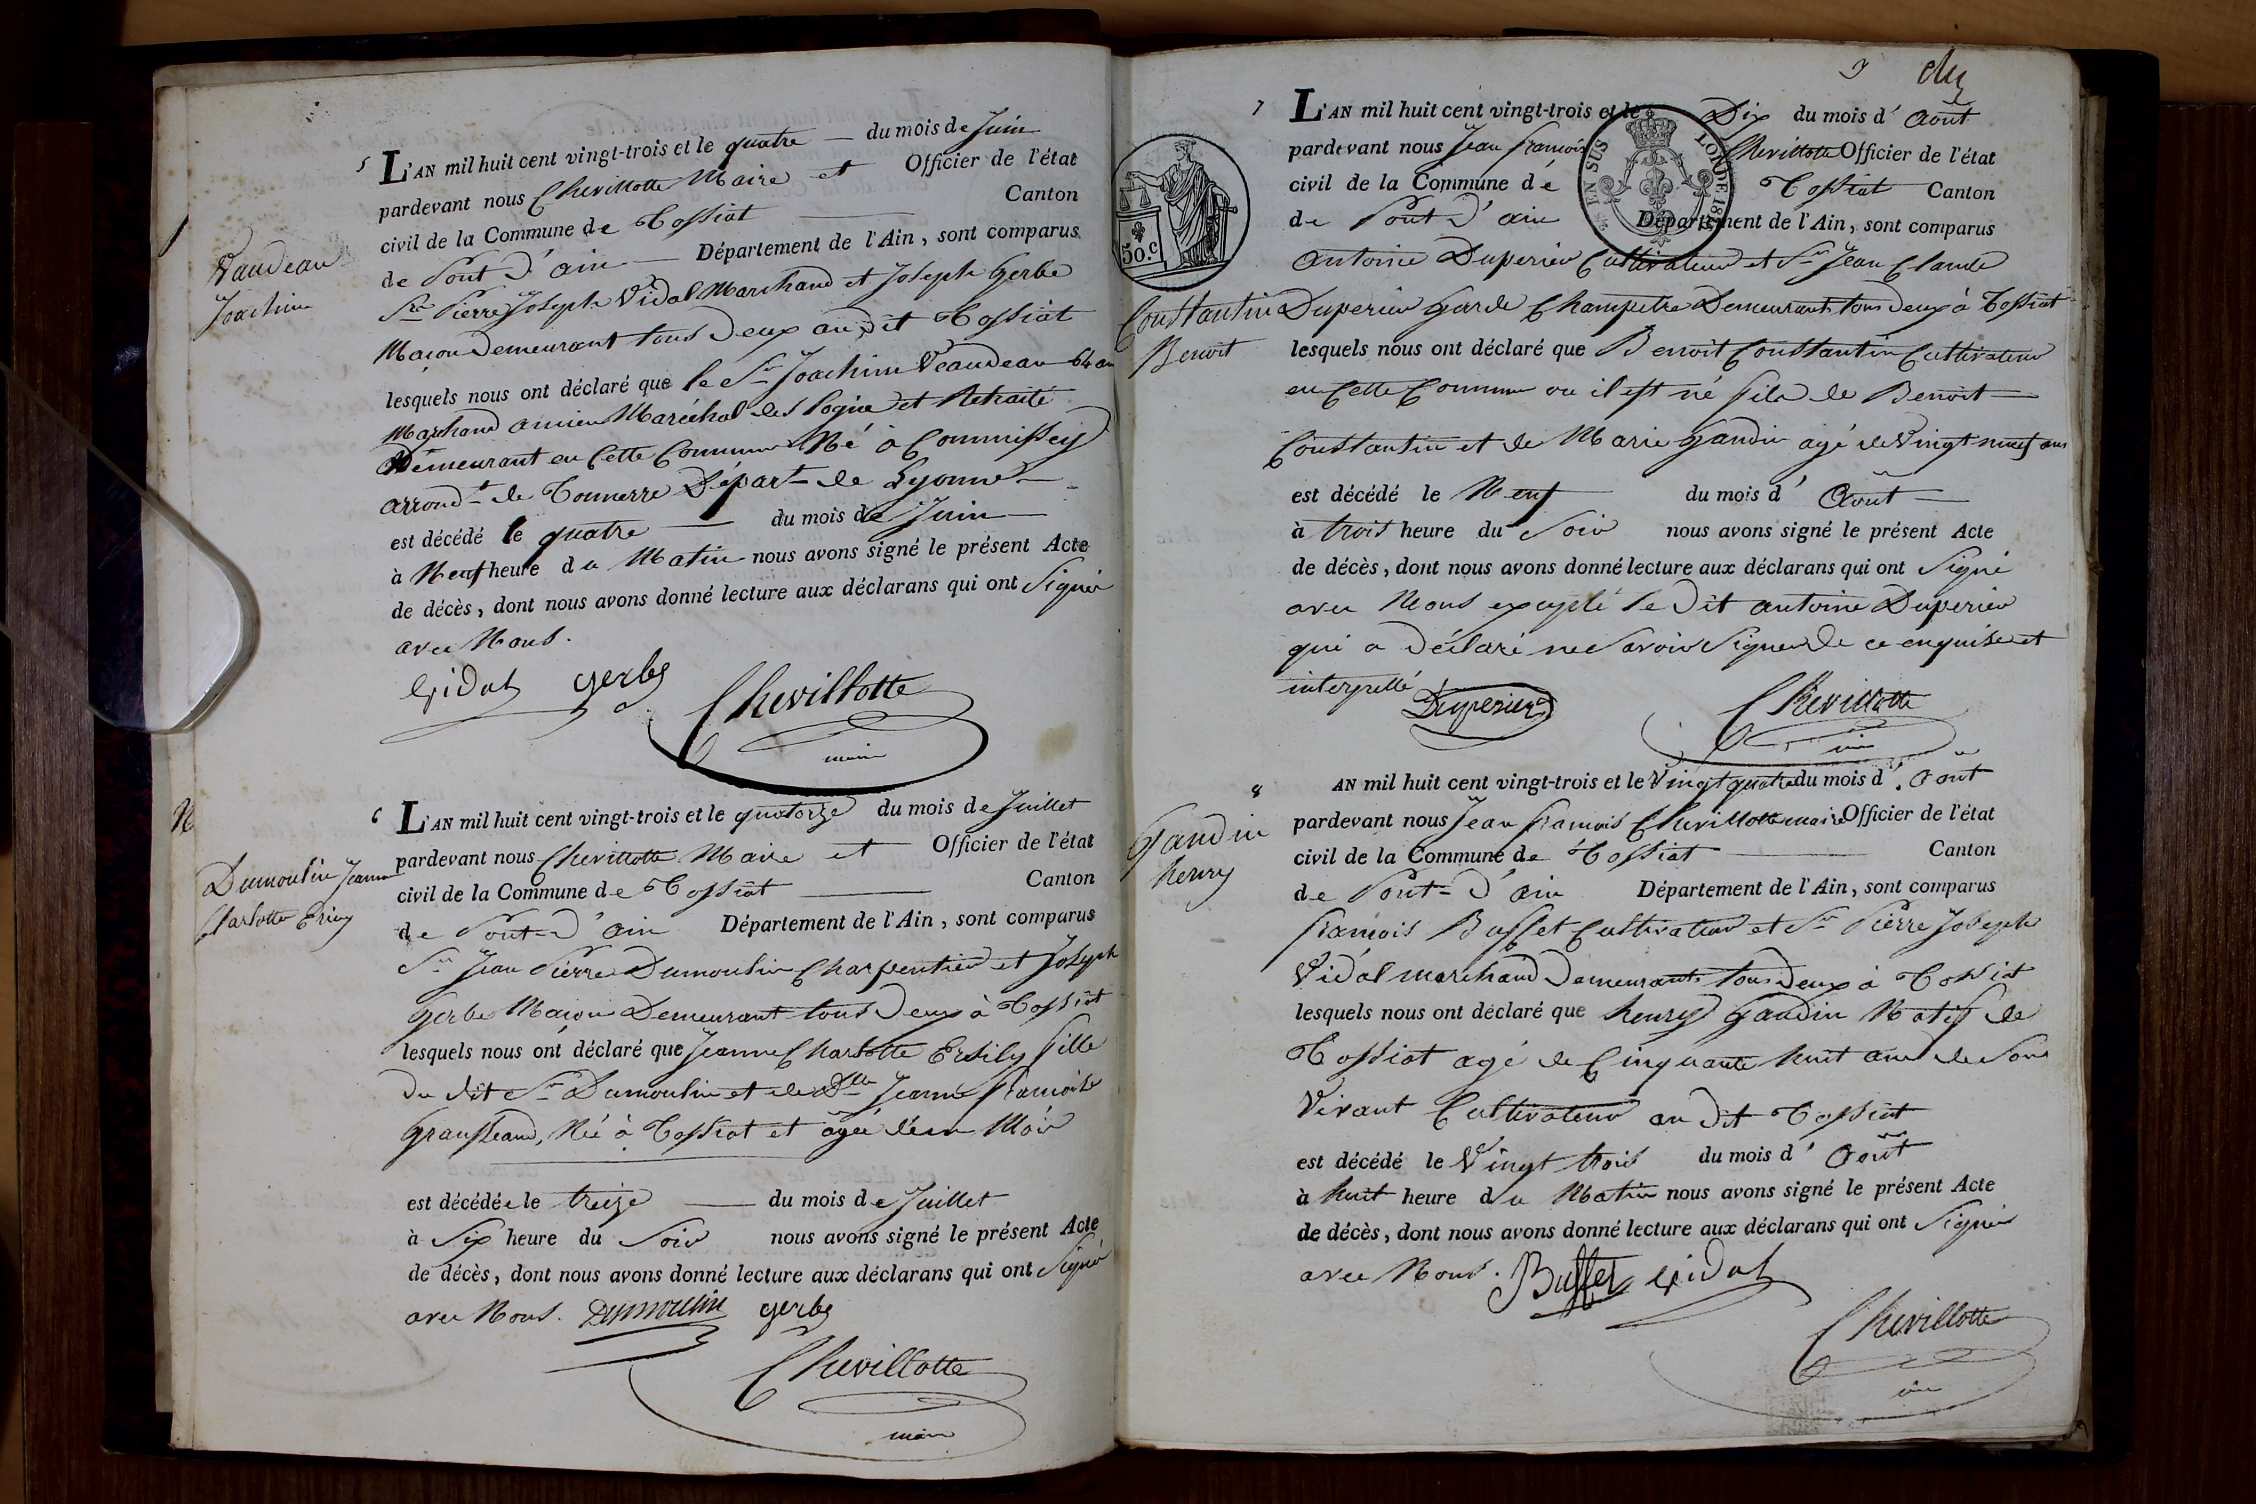 5
L'AN mil huit cent vingt-trois et le quatre du mois de Juin
pardevant nous Chevillotte Maire et Officier de l'état
civil de la Commune de Tossiat Canton
de Pont d'ain Département de l'Ain, sont comparus
Sr Pierre Joseph Vidal Marchand et Joseph Gerbe
Maçon Demeurant tous Deux au dit Tossiat
lesquels nous ont déclaré que le Sr Joachim Veaudeau 64 an
Marchand ancien Maréchal des Logis et Retraité
Demeurant en Cette Commune Né à Commissey
arrondt de Tonnerre Départ de Lyonne
est décédé le quatre du mois de Juin
à Neuf heure du Matin nous avons signé le présent Acte
de décès, dont nous avons donné lecture aux déclarans qui ont Signé
avec Nous.
Vidal Gerbe
Chevillotte
maire
Vaudeau
Joachim
6
L'AN mil huit cent vingt-trois et le quatorze du mois de Juillet
pardevant nous Chevillotte Maire et Officier de l'état
civil de la Commune de Tossiat Canton
de Pont-D'ain Département de l'Ain, sont comparus
Sr Jean Pierre Dumoulin Charpentier et Joseph
Gerbe Maçon Demeurant tous Deux à Tossiat
lesquels nous ont déclaré que Jeanne Charlotte Ersily fille
Du dit Sr Dumoulin et de Dlle Jeanne Francoise
Née à Tossiat et agée d'un Mois
est décédée le treize du mois de Juillet
à Six heure du Soir nous avons signé le présent Acte
de décès, dont nous avons donné lecture aux déclarans qui ont Signé
avec Nous. Dumoulin Gerbe
Chevillotte
maire
N
Dumoulin Jeanne
Charlotte
9
7
L'AN mil huit cent vingt-trois et le Dix du mois d'Août
pardevant nous Jean francois Chevillotte Officier de l'état
civil de la Commune dé Tossiat Canton
de Pont-D'ain Département de l'Ain, sont comparus
antoine Duperier Cultivateur et Sr Jean Claude
Duperier Garde Champetre Demeurants tous Deux à Tossiat
lesquels nous ont déclaré que Benoit Constantin Cultivateur
en Cette Commune ou il est né fils de Benoit
Constantin et de Marie Gandin agé de Vingt neuf ans
est décédé le Neuf du mois d'Août
à trois heure du Soir nous avons signé le présent Acte
de décès, dont nous avons donné lecture aux déclarans qui ont Signé
avec Nous excepté le Dit antoine Duperier
qui a Déclaré ne Savoir Signer de ce enquise et
interpellé
Duperier
Chevillotte
Constantin
Benoit
50.c
EN SUS
8
AN mil huit cent vingt-trois et le Vingt quatre du mois d'Août
pardevant nous Jean francois Chevillotte maire Officier de l'état
civil de la Commune de Tossiat Canton
de Pont-D'ain Département de l'Ain, sont comparus
francois Buffet Cultivateur et Sr Pierre Joseph
Vidal marchand Demeurants tous Deux à Tossiat
lesquels nous ont déclaré que henry Gandin Natif de
Tossiat agé de Cinquante huit ans de Son
Vivant Cultivateur au Dit Tossiat
est décédé le Vingt trois du mois d'Août
à huit heure du Matin nous avons signé le présent Acte
de décès, dont nous avons donné lecture aux déclarans qui ont Signés
avec Nous. Buffet Vidal
Chevillotte
Gandin
henry